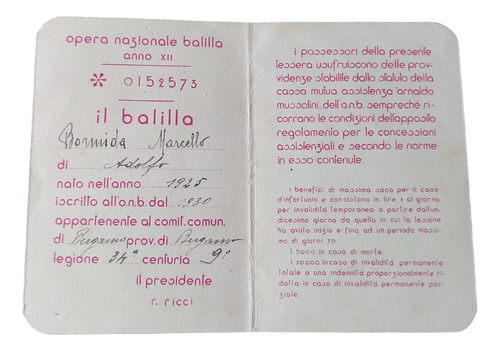 opera nazionale balilla
anno XII
0152573
il balilla
Bormida Marcello
di Adolfo
nato nell'anno 1925
iscritto all'o.n.b. dal 1930
appartenente al comit. comun.
di Bergamo prov. di Bergamo
legione 34ª centuria 9ª
il presidente
r. ricci
i possessori della presente
tessera usufruiscono delle prov-
videnze stabilite dallo statuto della
cassa mutua assistenza arnaldo
mussolini, dell'o.n.b. sempreché ri-
corrano le condizioni dell'apposito
regolamento per le concessioni
assistenziali e secondo le norme
in esso contenute.
i benefici di massima sono per il caso
d'infortunio e consistono in lire 4 al giorno
per invalidità temporanea a partire dall'un-
dicesimo giorno da quello in cui la lesione
ha avuto inizio e fino ad un periodo massi-
mo di giorni 70.
l. 5000 in caso di morte.
l. 30000 in caso di invalidità permanente
totale o una indennità proporzionalmente ri-
dotta in caso di invalidità permanente par-
ziale.